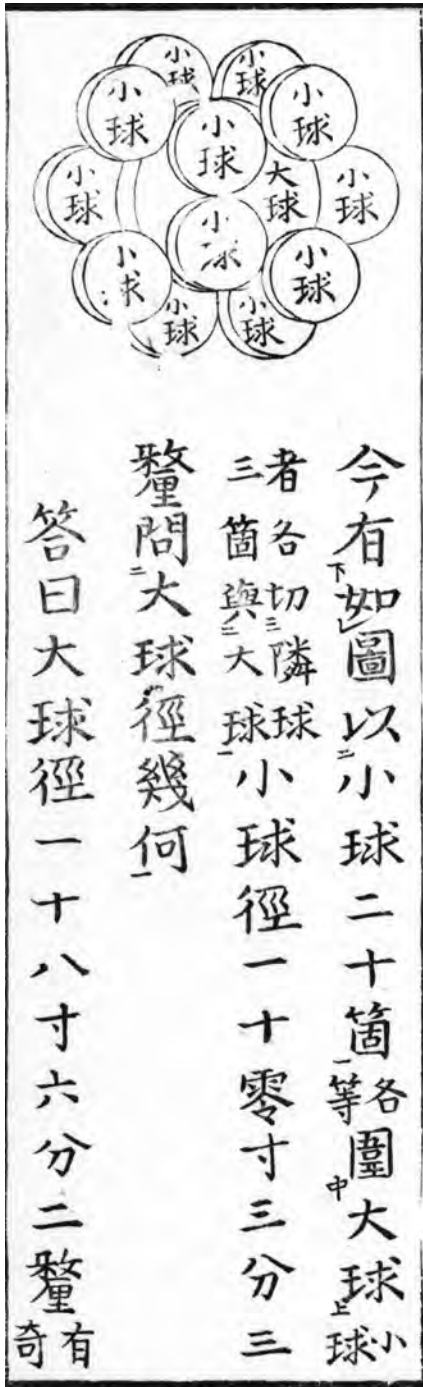 小球
小球
小球
小球
小球
小球
大球
小球
小球
小球
小球
小球
小球
今有如圖以小球二十箇各等圍大球小球
者各切隣球三箇與大球小球徑一十零寸三分三
釐問大球徑幾何
答曰大球徑一十八寸六分二釐有奇